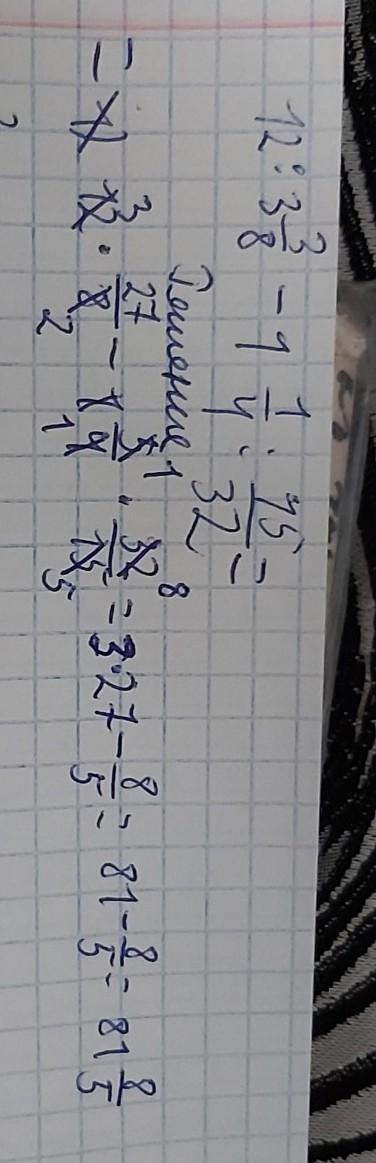 12 : 3 3/8 - 1 1/4 : 15/32 =
Решение
= 12 3 · 27/8 2 - 5 1/4 1 · 32 8/15 5 = 3·27 - 8/5 = 81 - 8/5 = 81 8/5